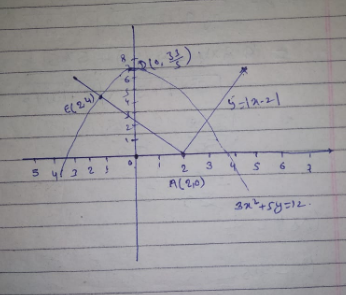 8
D(0, 33/5)
7
6
E(2,4)
5
4
y=|x-2|
3
2
1
5 4 3 2 1 0 1 2 3 4 5 6 7
A(2,0)
3x²+5y=12.